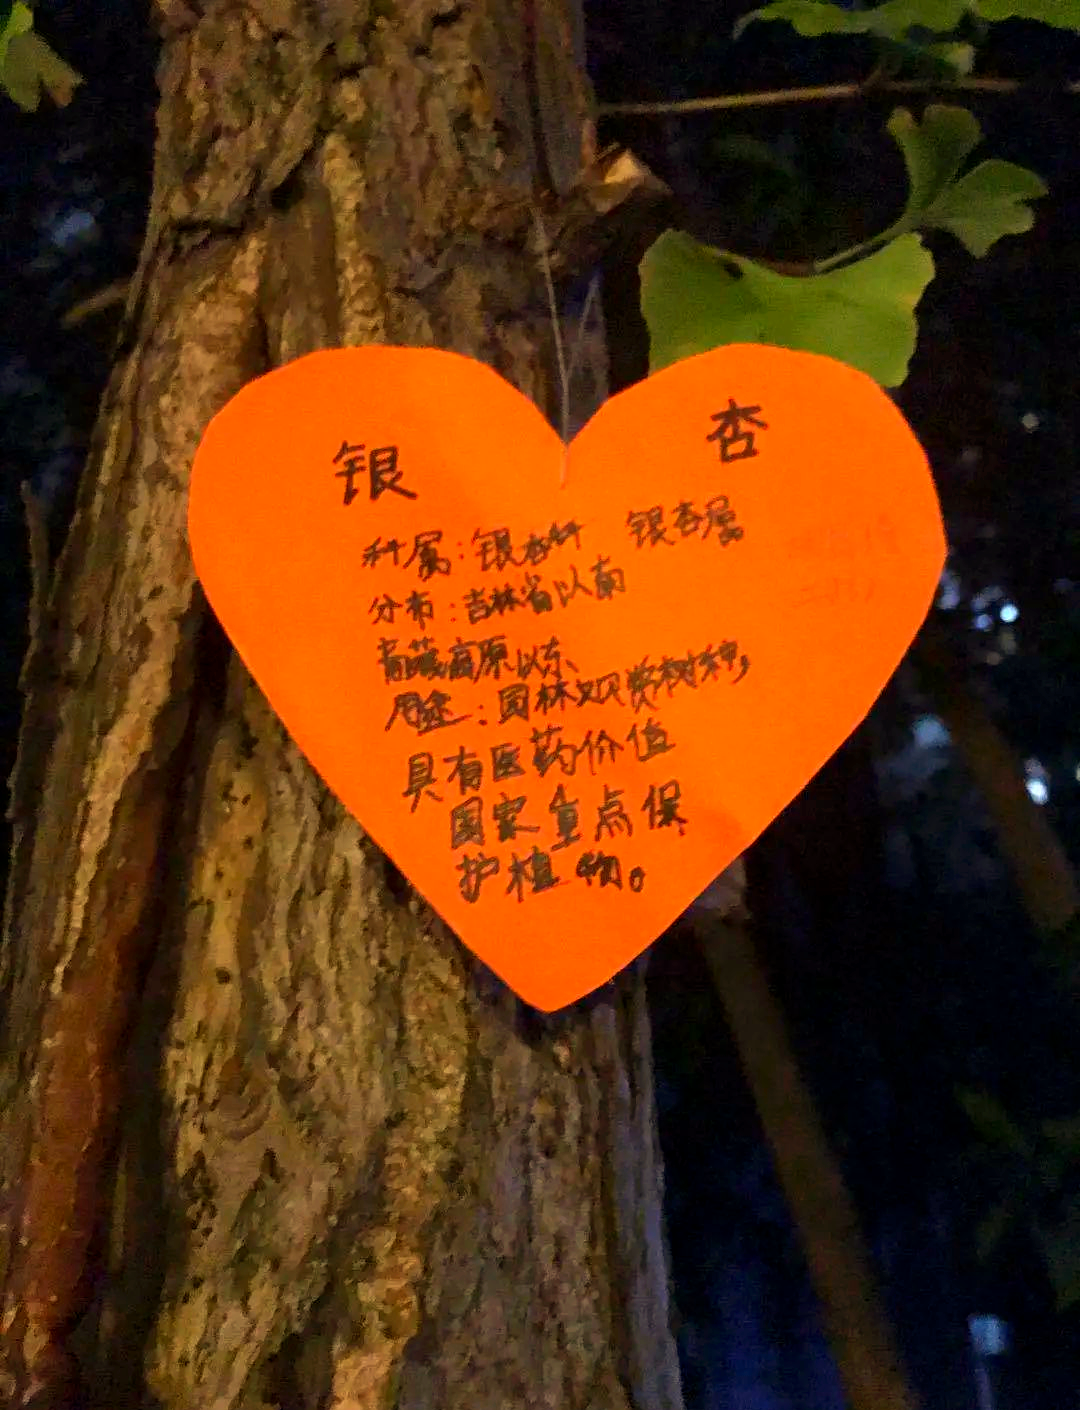 银 杏
科属：银杏科 银杏属
分布：吉林省以南
青藏高原以东
用途：园林观赏树种，
具有医药价值
国家重点保
护植物。